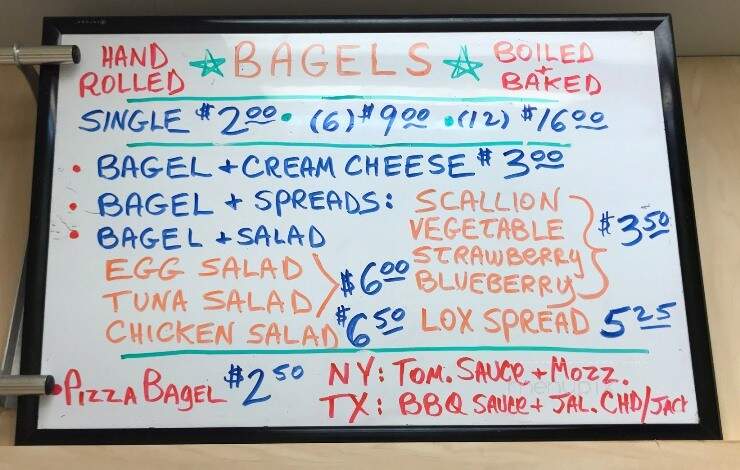 HAND ROLLED ☆ BAGELS ☆ BOILED + BAKED
SINGLE $2.00 • (6) $9.00 • (12) $16.00
• BAGEL + CREAM CHEESE $3.00
• BAGEL + SPREADS:
SCALLION
VEGETABLE
STRAWBERRY
BLUEBERRY
$3.50
LOX SPREAD 5.25
• BAGEL + SALAD
EGG SALAD
TUNA SALAD
$6.00
CHICKEN SALAD $6.50
• PIZZA BAGEL $2.50
NY: TOM. SAUCE + MOZZ.
TX: BBQ SAUCE + JAL. CHD/JACK